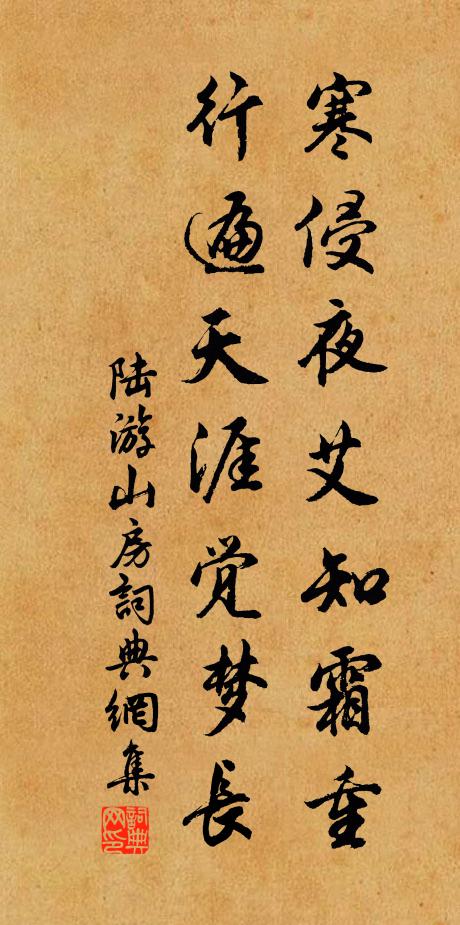 寒侵夜艾知霜重
行遍天涯觉梦长
陆游山房詞典網集
詞典网印